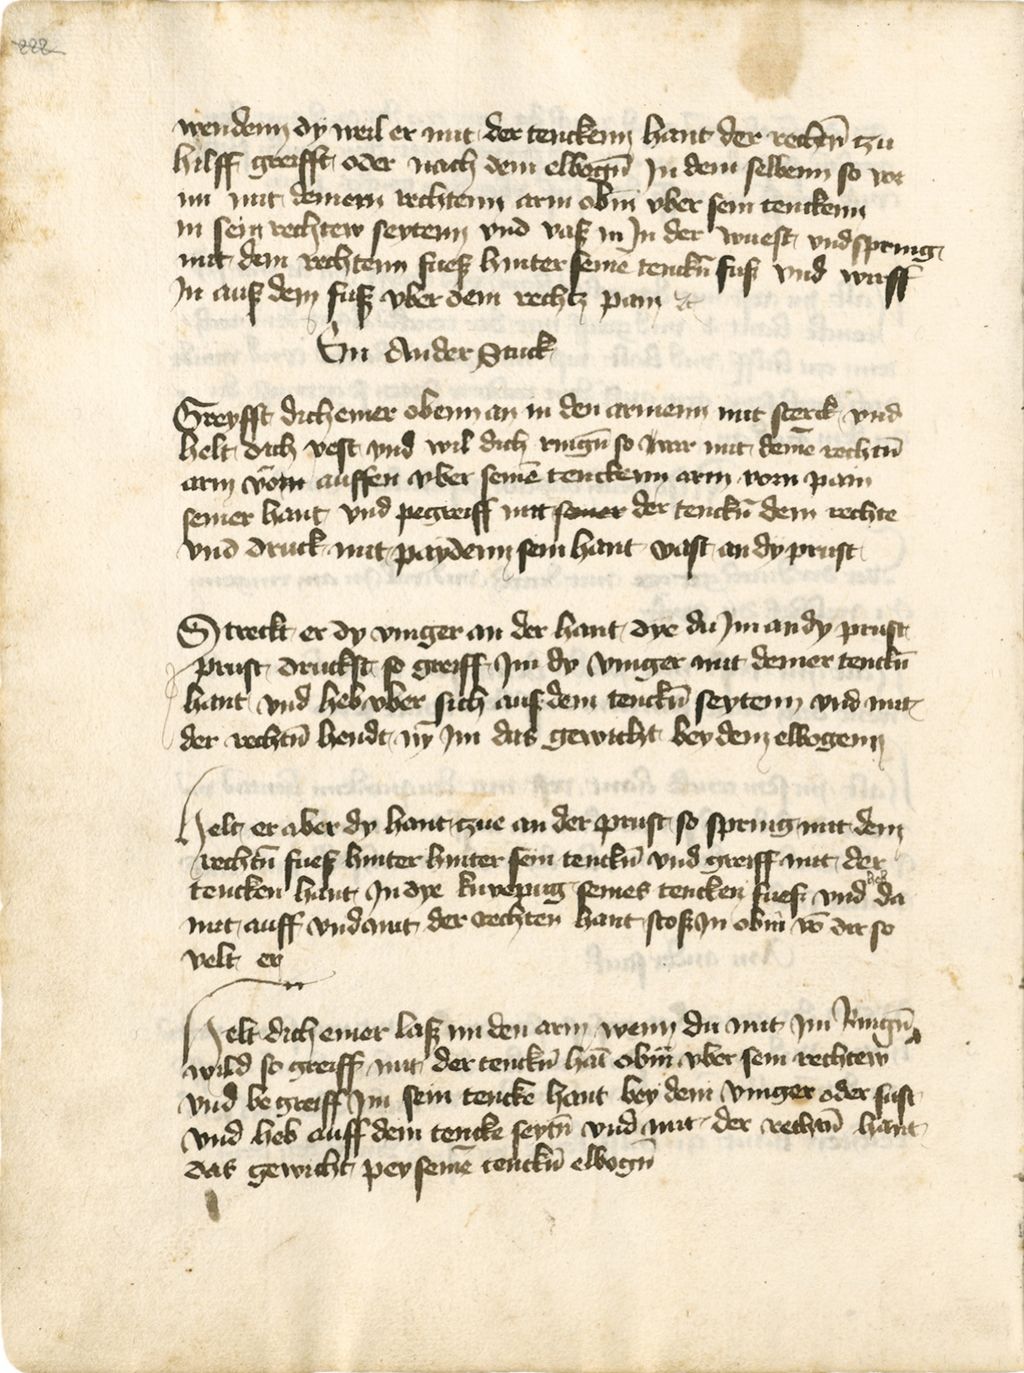 222
wendenn dy weil er mit der tenckenn hant der rechtn̄ zu
hilff greifft oder nach dem elbogn̄ In dem selbenn so var
im mit deinem rechtenn arm obin̄ vber sein tenckenn
in sein rechtew seytenn vnd vaß in In der wuest vnd spring
mit dem rechtenn fuеß hinter seinē tenckn̄ fuß vnd wirff
In auß dem fuß vber dem rechtz pain ⁊c
Ein Ander Stuck
Greyfft dich einer obenn an in den armenn mit sterck vnd
helt dich vest vnd wil dich ringn̄ so var mit deinē rechtn̄
arm von auffen vber seinē tenckenn arm vorn pain
seiner hant vnd pegreiff mit seiner der tenckn̄ dein rechte
vnd druck mit paydenn sein hant vast an dy prust
Streckt er dy vinger an der hant dye du Im an dy prust
prust druckst so greiff Im dy vinger mit deiner tenckn̄
hant vnd heb vber sich auf dein tenckn̄ seytenn vnd mit
der rechtn̄ hendt nȳ Im das gewicht bey dem elbogenn
Helt er aber dy hant zue an der prust so spring mit dem
rechtn̄ fueß hinter hinter sein tenckn̄ vnd greiff mit der
tencken hant In dye kniepug seines tencken fueß vnd heb da
mit auff vnd mit der rechten hant stoß In obin̄ vō dir so
velt er
Helt dich einer laß in den arm wenn du mit Im Ringn̄
wild so greiff mit der tenckn̄ hāt obin̄ vber sein rechtew
vnd begreiff Im sein tencke hant bey dem vinger oder sust
vnd heb auff dein tencke seytn̄ vnd mit der rechtn̄ hant
das gewicht pey seinē tenckn̄ elbogn̄